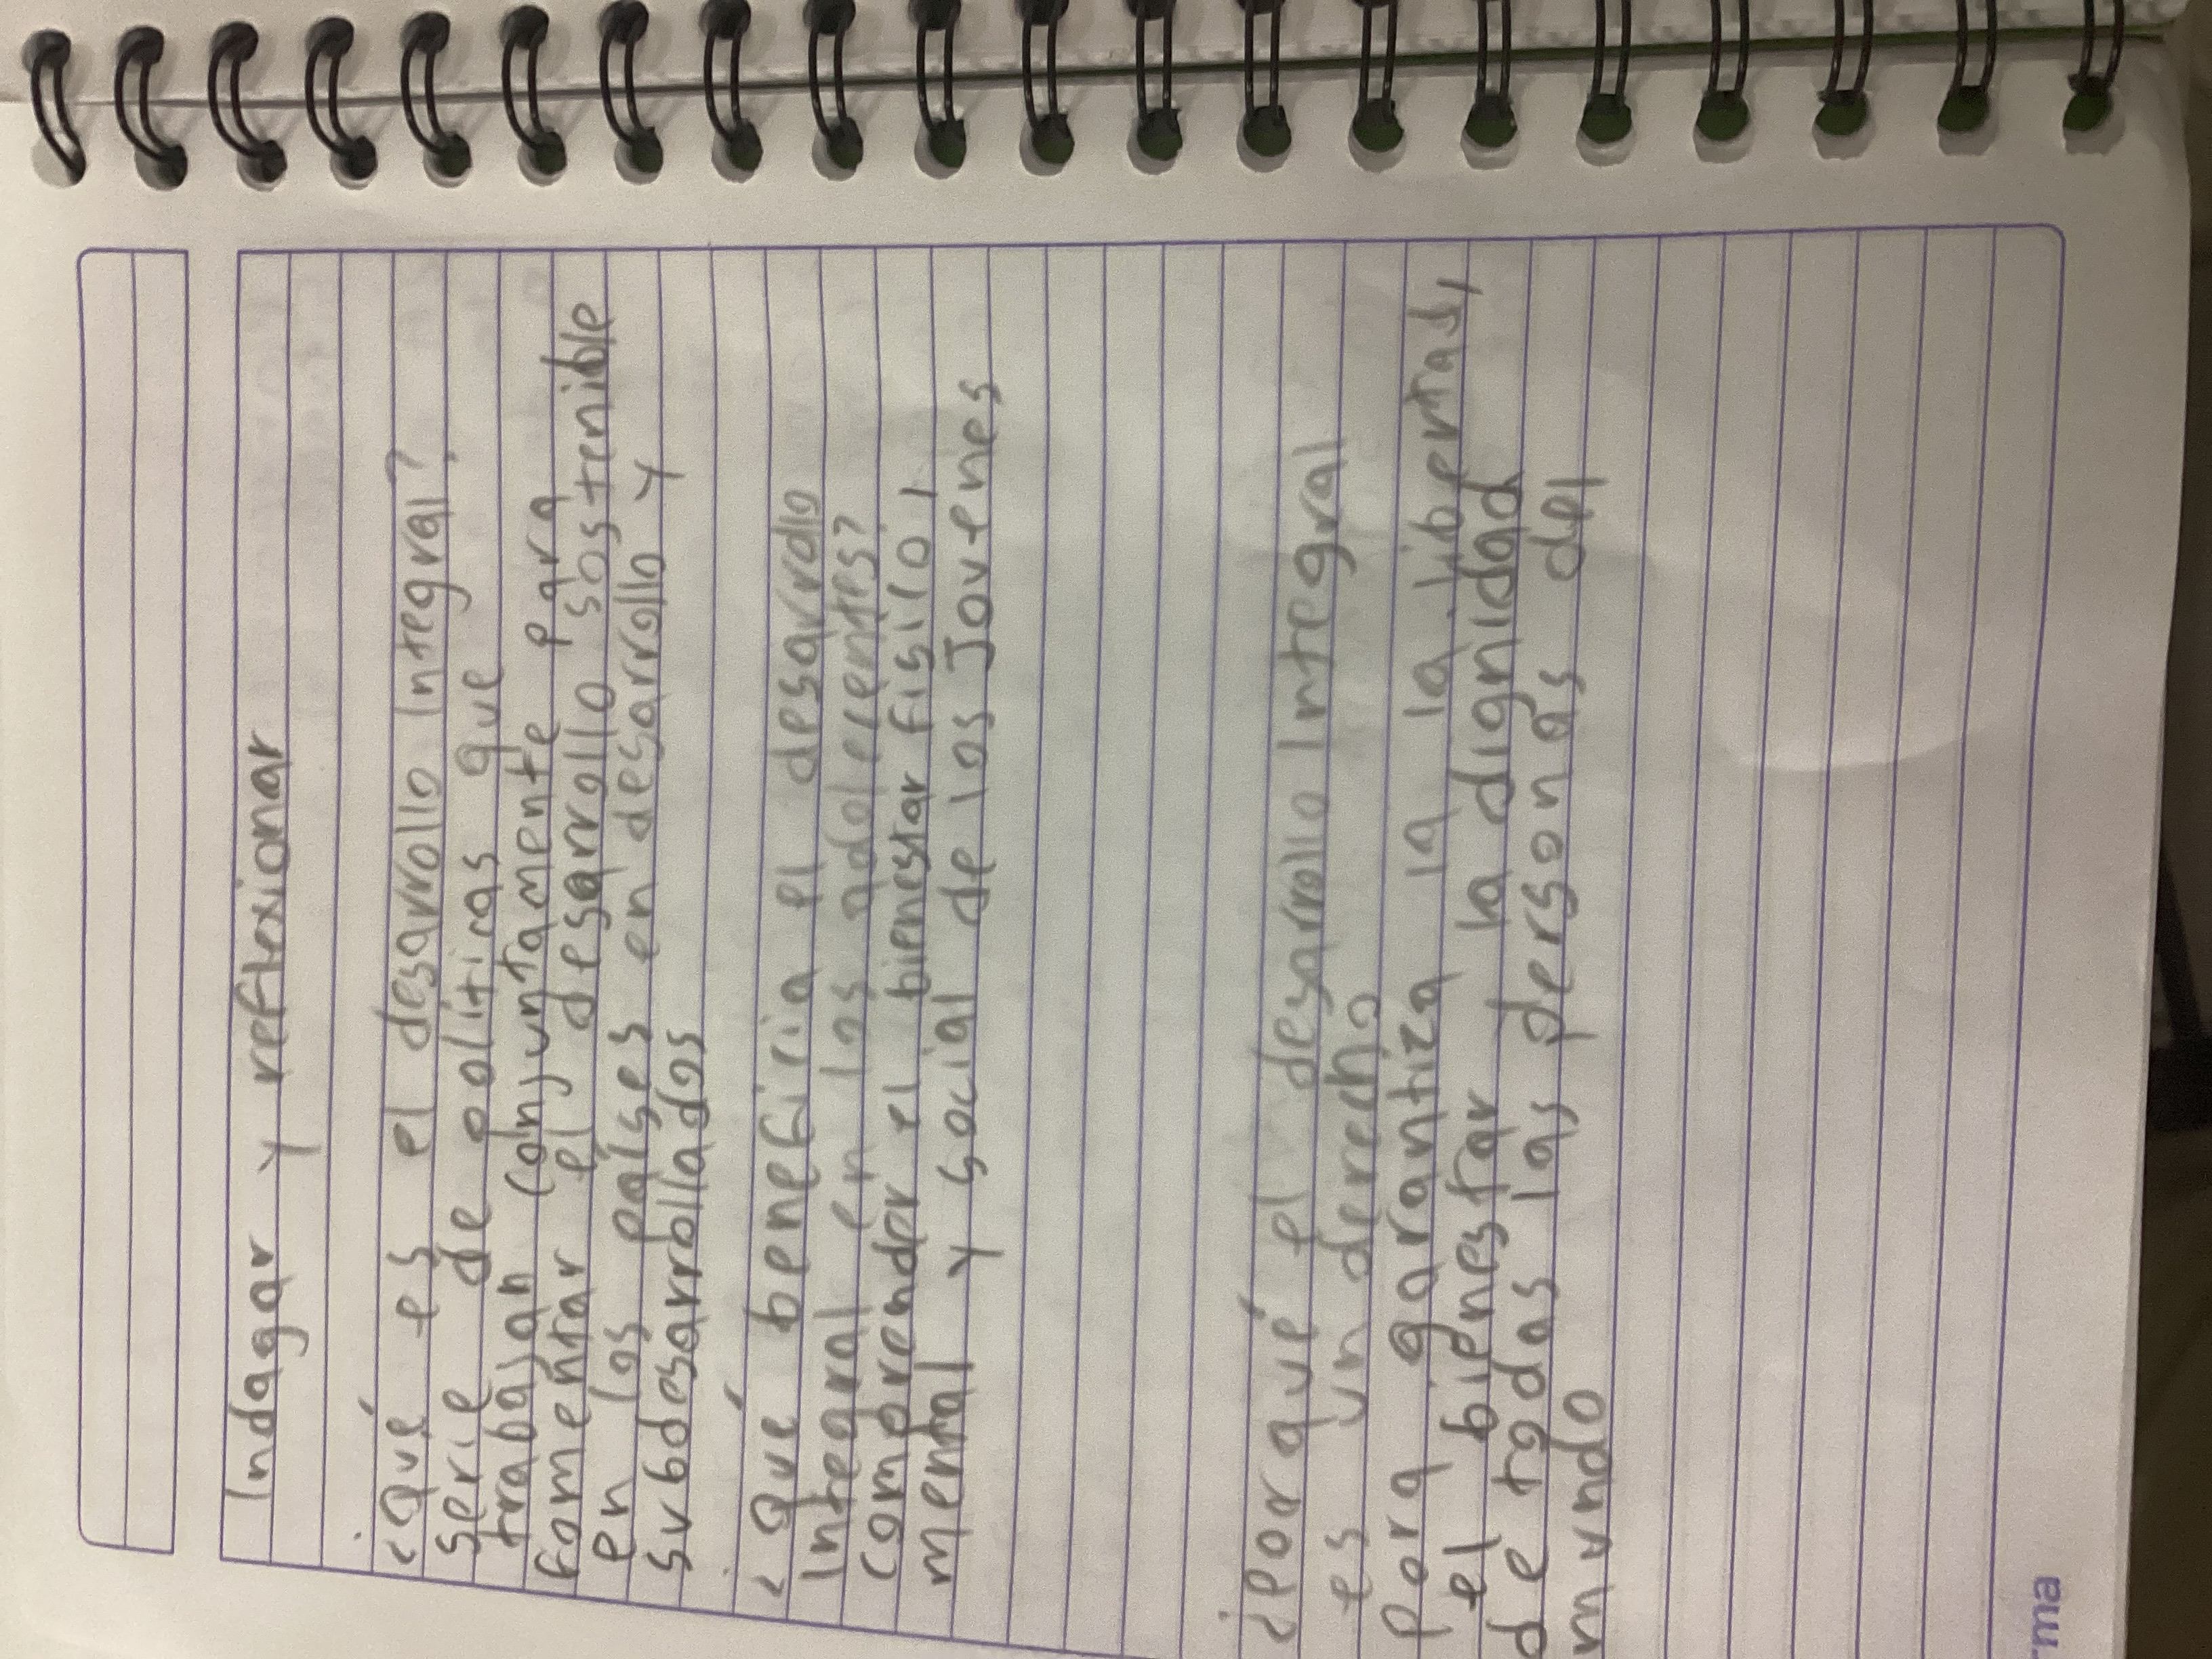 Indagar y reflexionar
¿Qué es el desarrollo integral?
serie de políticas que
trabajan conjuntamente para
fomentar el desarrollo sostenible
en los países en desarrollo y
subdesarrollados
¿Qué beneficia el desarrollo
integral en los adolecentes?
comprender el bienestar físico,
mental y social de los Jovenes
¿Por qué el desarrollo integral
es un derecho
Para garantiza la la libertad,
el bienestar la dignidad
de todas las personas del
mundo
rma